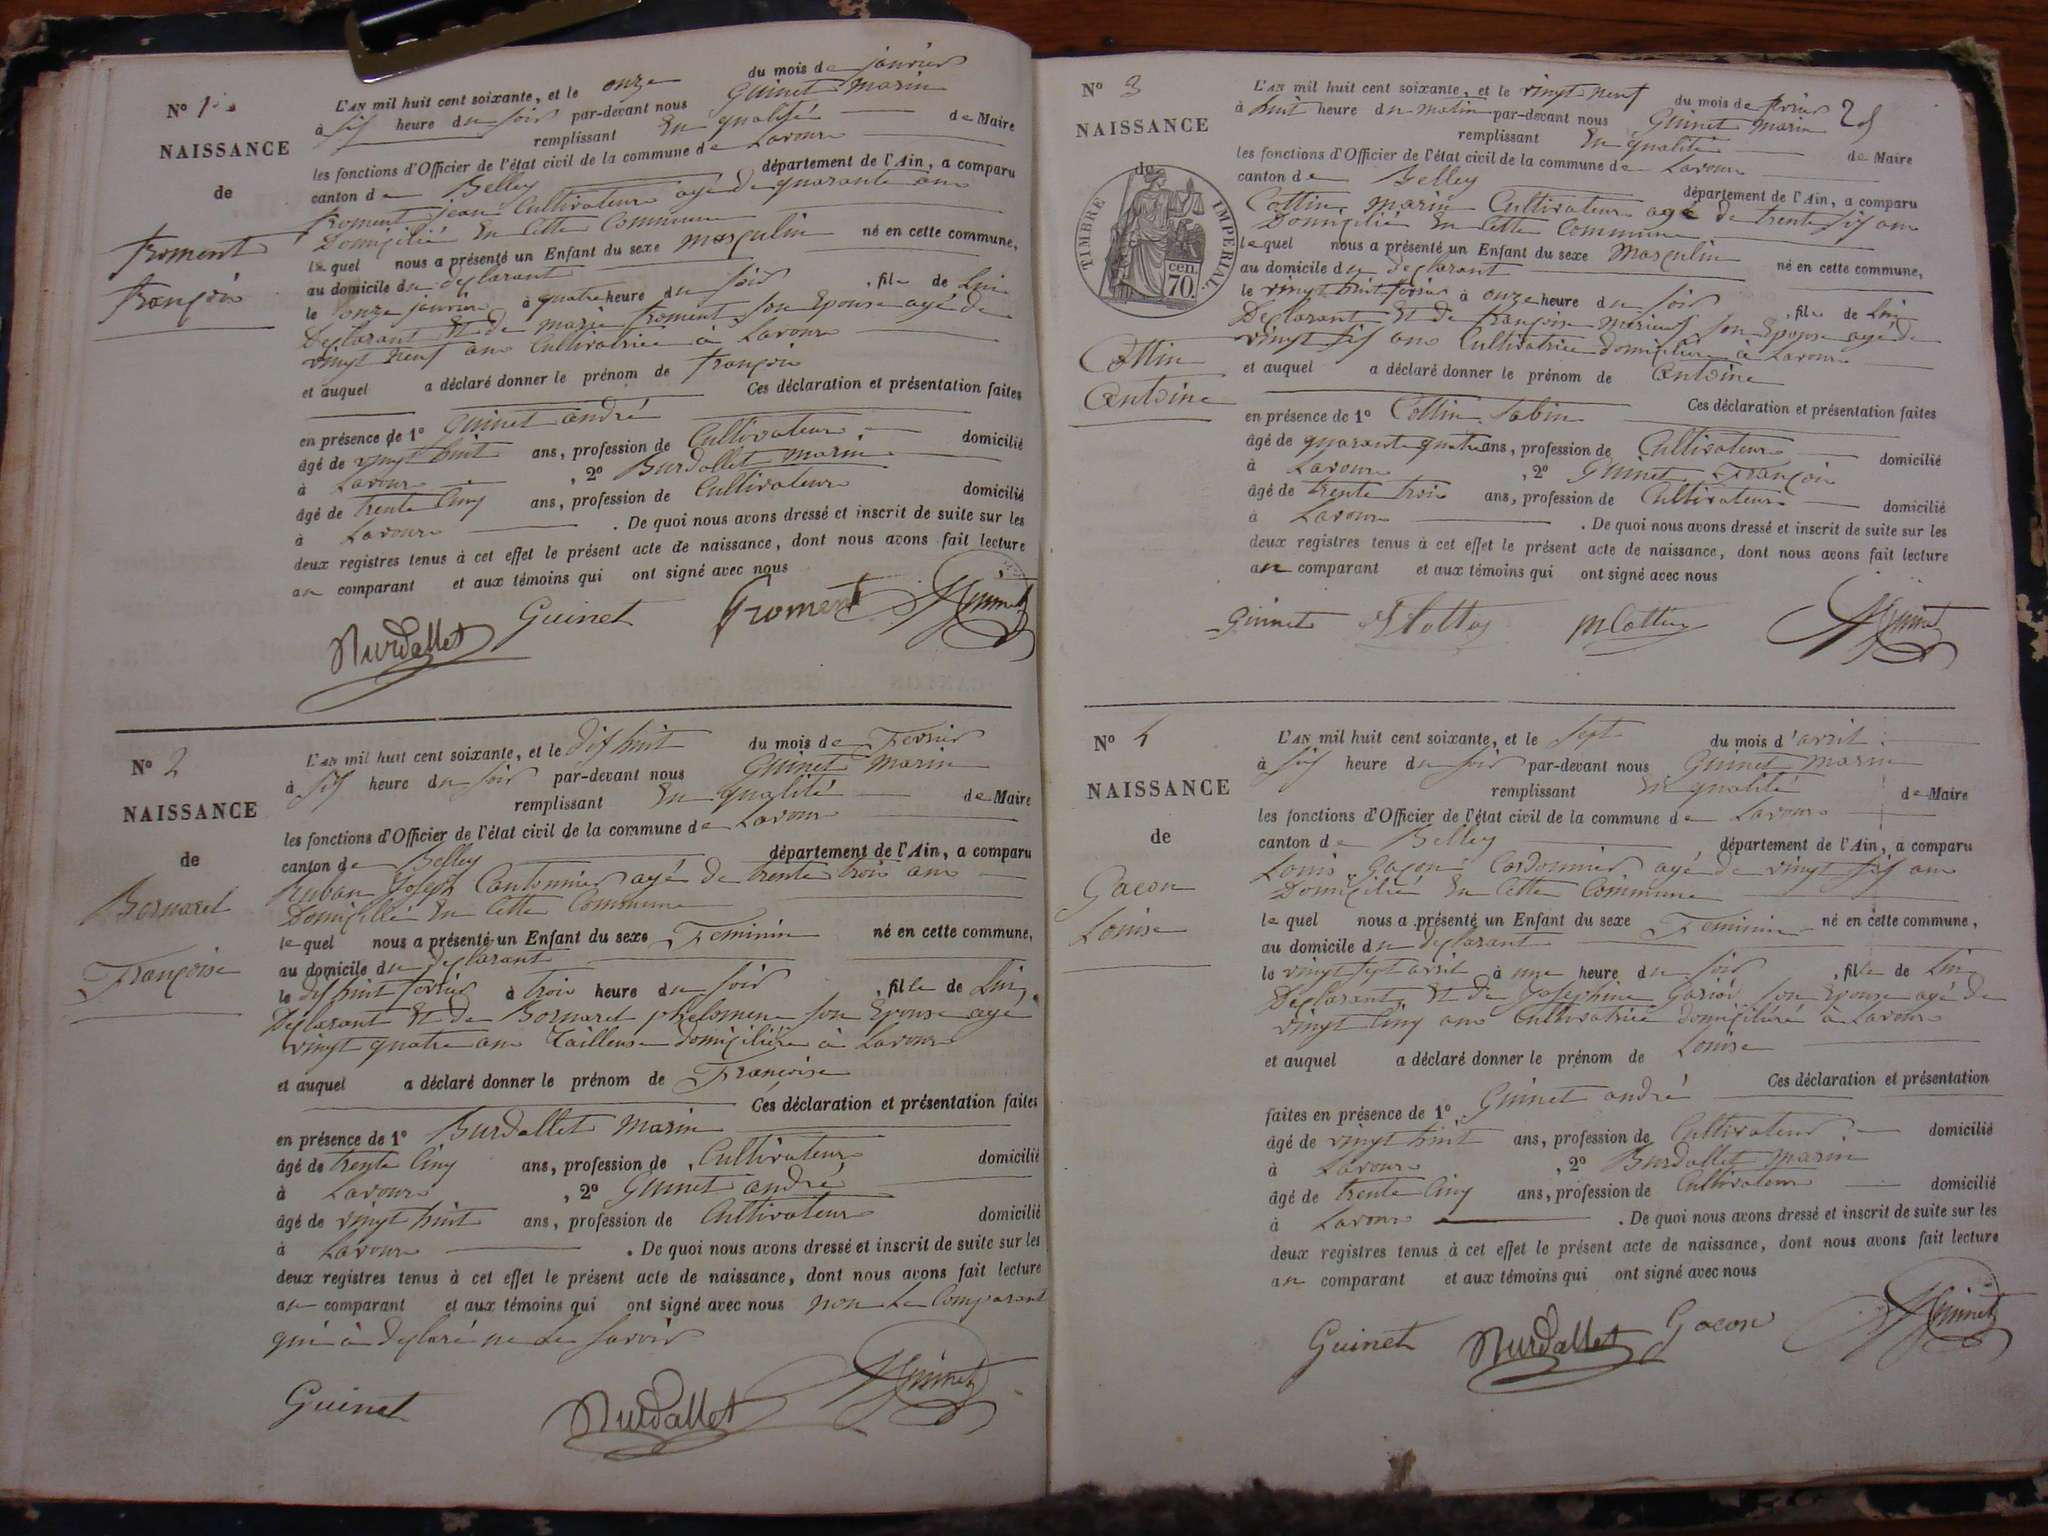 N° 1
NAISSANCE
de
Froment
François
L'AN mil huit cent soixante, et le onze du mois de janvier
à six heure du soir par-devant nous Guinet Marin
remplissant en qualité de Maire
les fonctions d'Officier de l'état civil de la commune de Lavour
canton de Belley département de l'Ain, a comparu
Froment jean Cultivateur agé de quarante ans
Domicilié En Cette Commune
lequel nous a présenté un Enfant du sexe masculin né en cette commune,
au domicile du declarant
le onze janvier à quatre heure du soir, fils de Lui
Declarant Et de marie froment son Epouse agé de
vingt neuf ans Cultivatrice à Lavour
et auquel a déclaré donner le prénom de François
Ces déclaration et présentation faites
en présence de 1° Guinet andré
âgé de vingt huit ans, profession de Cultivateur domicilié
à Lavour, 2° Burdallet marin
âgé de trente Cinq ans, profession de Cultivateur domicilié
à Lavour. De quoi nous avons dressé et inscrit de suite sur les
deux registres tenus à cet effet le présent acte de naissance, dont nous avons fait lecture
au comparant et aux témoins qui ont signé avec nous
Burdallet Guinet Froment Guinet
N° 2
NAISSANCE
de
Bornarel
Françoise
L'AN mil huit cent soixante, et le dix huit du mois de Fevrier
à six heure du soir par-devant nous Guinet Marin
remplissant En qualité de Maire
les fonctions d'Officier de l'état civil de la commune de Lavour
canton de Belley département de l'Ain, a comparu
Ruban Joseph Cantonnier agé de trente trois ans
Domicilié En Cette Commune
lequel nous a présenté un Enfant du sexe Feminin né en cette commune,
au domicile du declarant
le dix huit fevrier à trois heure du soir, fille de Lui,
Declarant Et de Bornarel phelomene son Epouse agé
vingt quatre ans Tailleuse domiciliée à Lavour
et auquel a déclaré donner le prénom de Francoise
Ces déclaration et présentation faites
en présence de 1° Burdallet Marin
âgé de trente Cinq ans, profession de Cultivateur domicilié
à Lavour, 2° Guinet andré
âgé de vingt huit ans, profession de Cultivateur domicilié
à Lavour. De quoi nous avons dressé et inscrit de suite sur les
deux registres tenus à cet effet le présent acte de naissance, dont nous avons fait lecture
au comparant et aux témoins qui ont signé avec nous non Le Comparant
qui à declaré ne Le savoir
Guinet Burdallet Guinet
N° 3
NAISSANCE
de
TIMBRE IMPERIAL.
cen.
70.
Cottin
Antoine
L'AN mil huit cent soixante, et le vingt neuf du mois de fevrier
à huit heure du matin par-devant nous Guinet Marin
remplissant En qualité de Maire
les fonctions d'Officier de l'état civil de la commune de Lavour
canton de Belley département de l'Ain, a comparu
Cottin marin Cultivateur agé de trente six ans
Domicilié En Cette Commune
lequel nous a présenté un Enfant du sexe Masculin né en cette commune,
au domicile du declarant
le vingt huit fevrier à onze heure du soir, fils de Lui
Declarant Et de Françoise son Epouse agé de
vingt six ans Cultivatrice domiciliée à Lavour
et auquel a déclaré donner le prénom de Antoine
Ces déclaration et présentation faites
en présence de 1° Cottin Sabin
âgé de quarante quatre ans, profession de Cultivateur domicilié
à Lavour, 2° Guinet François
âgé de trente trois ans, profession de Cultivateur domicilié
à Lavour. De quoi nous avons dressé et inscrit de suite sur les
deux registres tenus à cet effet le présent acte de naissance, dont nous avons fait lecture
au comparant et aux témoins qui ont signé avec nous
Guinet M Cottin Guinet
N° 4
NAISSANCE
de
Gacon
Louise
L'AN mil huit cent soixante, et le sept du mois d'avril
à six heure du soir par-devant nous Guinet Marin
remplissant En qualité de Maire
les fonctions d'Officier de l'état civil de la commune de Lavour
canton de Belley département de l'Ain, a comparu
Louis Gacon Cordonnier agé de vingt six ans
Domicilié En Cette Commune
lequel nous a présenté un Enfant du sexe Feminin né en cette commune,
au domicile du declarant
le vingt sept avril à une heure du soir, fille de Lui
Declarant, Et de Josephine son Epouse agé de
vingt Cinq ans Cultivatrice domiciliée à Lavour
et auquel a déclaré donner le prénom de Louise
Ces déclaration et présentation
faites en présence de 1° Guinet andré
âgé de vingt huit ans, profession de Cultivateur domicilié
à Lavour, 2° Burdallet Marin
âgé de trente Cinq ans, profession de Cultivateur domicilié
à Lavour. De quoi nous avons dressé et inscrit de suite sur les
deux registres tenus à cet effet le présent acte de naissance, dont nous avons fait lecture
au comparant et aux témoins qui ont signé avec nous
Guinet Burdallet Gacon Guinet